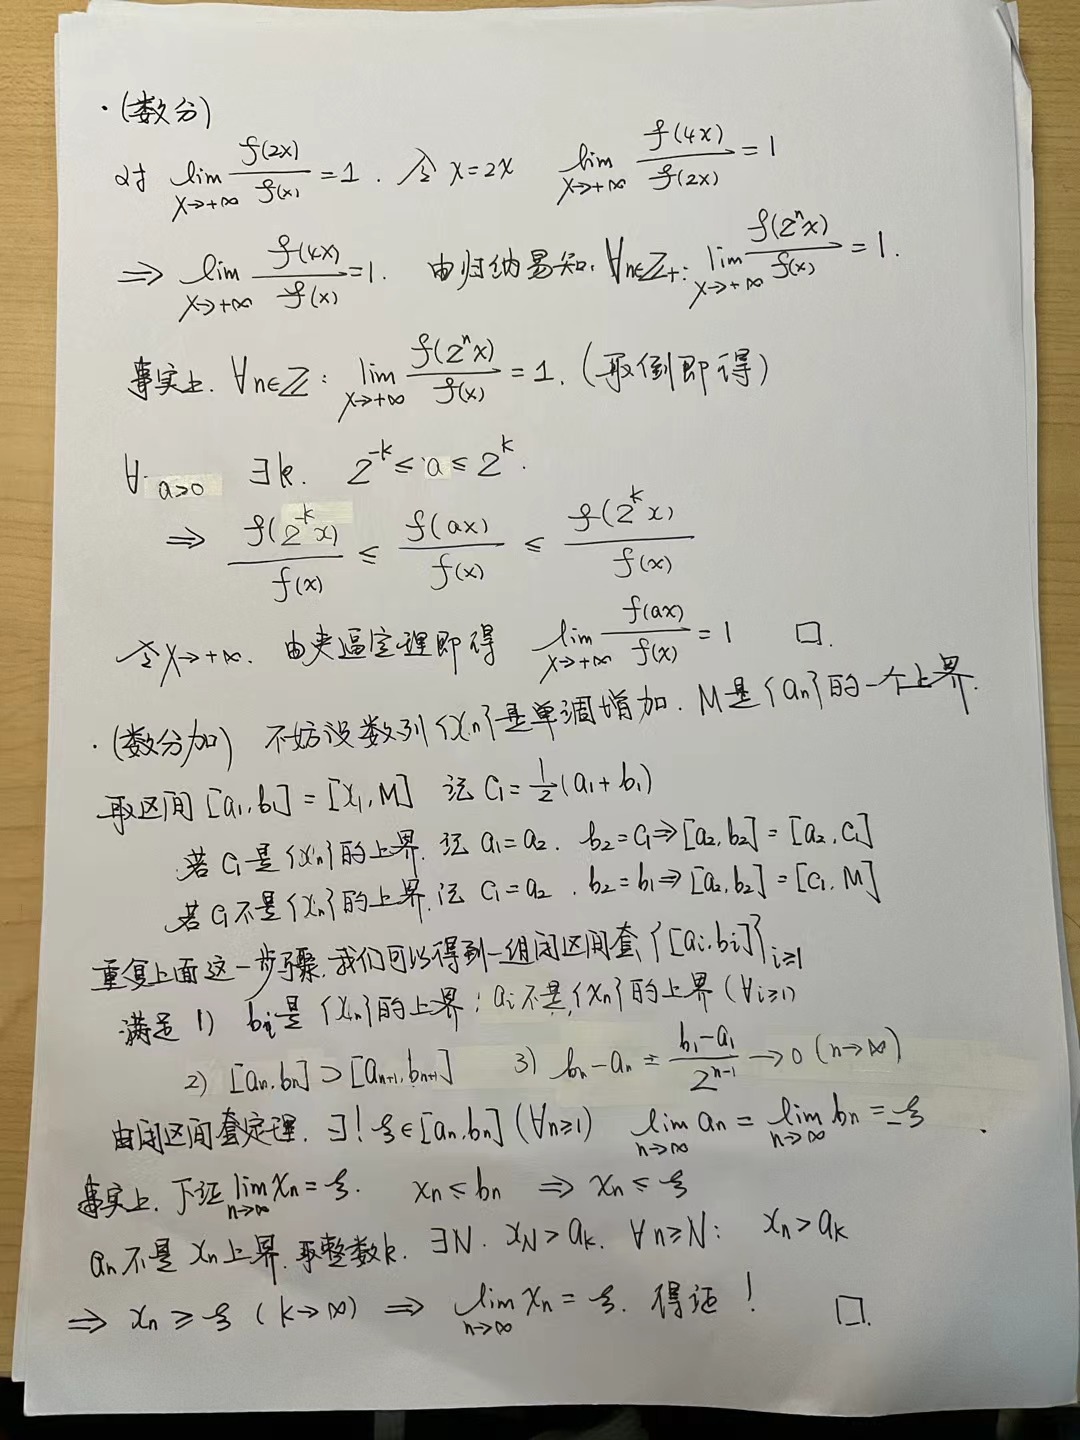 ·(数分)
对 lim_{x→+∞} f(2x)/f(x) = 1. 令 x=2x lim_{x→+∞} f(4x)/f(2x) = 1
⇒ lim_{x→+∞} f(4x)/f(x) = 1. 由归纳易知, ∀n∈Z₊: lim_{x→+∞} f(2ⁿx)/f(x) = 1.
事实上. ∀n∈Z: lim_{x→+∞} f(2ⁿx)/f(x) = 1. (取倒即得)
∀ a>0 ∃k. 2^{-k} ≤ a ≤ 2^k.
⇒ f(2^{-k}x)/f(x) ≤ f(ax)/f(x) ≤ f(2^k x)/f(x)
令x→+∞. 由夹逼定理即得 lim_{x→+∞} f(ax)/f(x) = 1 □.
·(数分加) 不妨设数列{xₙ}是单调增加. M是{aₙ}的一个上界.
取区间[a₁,b₁]=[x₁,M] 记 C₁=½(a₁+b₁)
若C₁是{xₙ}的上界. 记 a₁=a₂. b₂=C₁⇒[a₂,b₂]=[a₂,C₁]
若C₁不是{xₙ}的上界. 记 C₁=a₂. b₂=b₁⇒[a₂,b₂]=[C₁,M]
重复上面这一步骤. 我们可以得到一组闭区间套{[aᵢ,bᵢ]}_{i≥1}
满足 1) bᵢ是{xₙ}的上界; aᵢ不是{xₙ}的上界(∀i≥1)
2) [aₙ,bₙ]⊃[aₙ₊₁,bₙ₊₁] 3) bₙ-aₙ = (b₁-a₁)/2^{n-1} →0 (n→∞)
由闭区间套定理. ∃! ξ∈[aₙ,bₙ](∀n≥1) lim_{n→∞} aₙ = lim_{n→∞} bₙ = ξ.
事实上. 下证 lim_{n→∞} xₙ=ξ. xₙ≤bₙ ⇒ xₙ≤ξ
aₙ不是xₙ上界. 取整数k. ∃N. x_N>a_k. ∀n≥N: xₙ>a_k
⇒ xₙ≥ξ (k→∞) ⇒ lim_{n→∞} xₙ=ξ. 得证! □.